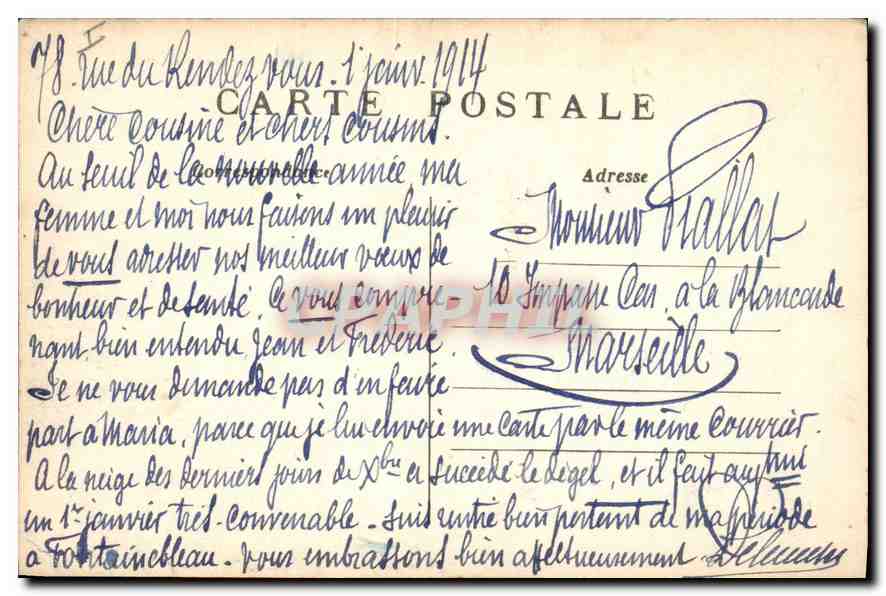 78 rue du Rendez vous. 1 janv. 1914
CARTE POSTALE
Chère Cousine et chers Cousins.
Correspondance
Adresse
Au seuil de la nouvelle année, ma
femme et moi nous faisons un plaisir
de vous adresser nos meilleur vœux de
bonheur et de santé. Ce vous compre-
nant, bien entendu, Jean et Fréderic.
Je ne vous demande pas d'en faire
part à Maria, parce que je lui envoie une Carte par le même Courrier.
A la neige des derniers jours de Xbre a succédé le dégel, et il fait aujhui
un 1er janvier très-convenable. Suis rentré bien portant de ma période
à Fontainebleau. Vous embrassons bien affectueusement.
Monsieur Viallat
10 Impasse Cas, à la Blancarde
Marseille
CPAPHIL